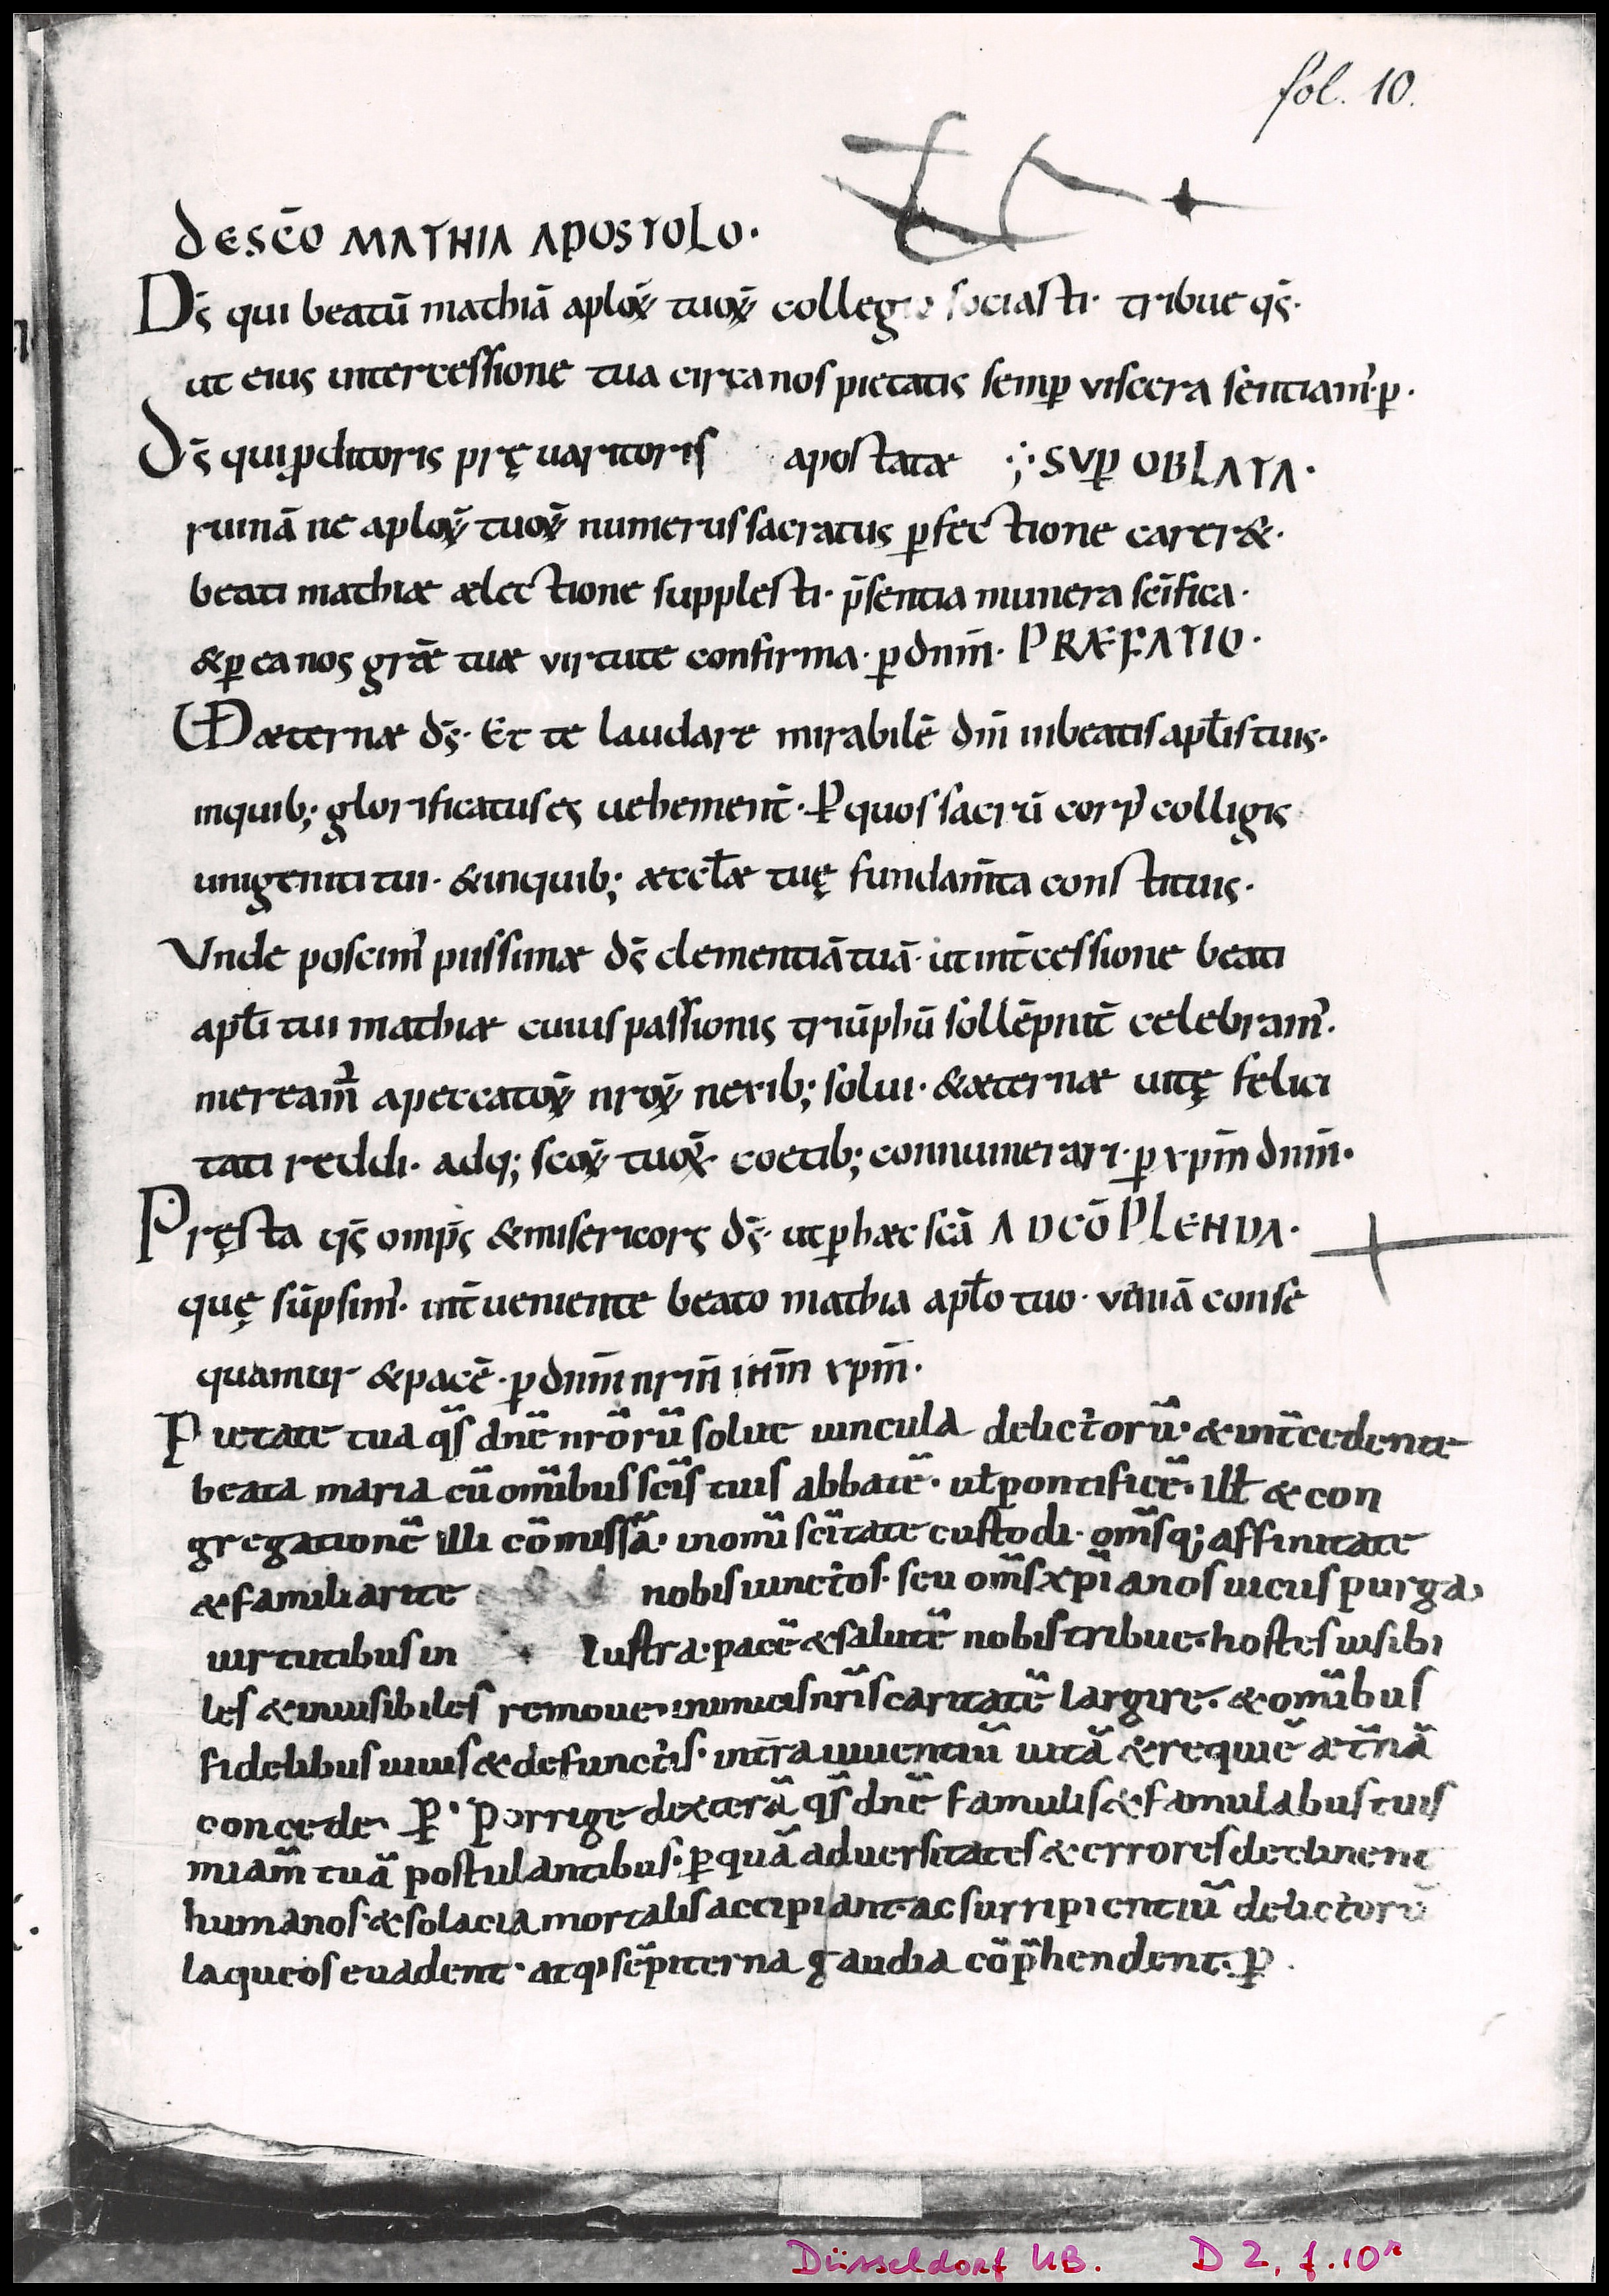 fol. 10.
DE SC̄O MATHIA APOSTOLO·
Ds̄ qui beatū mathiā aploꝝ tuoꝝ collegio sociasti· tribue qs̄·
ut eius intercessione tua circa nos pietatis semꝑ viscera sentiam᾽· ꝑ·
Ds̄ qui ꝓditoris pręuaritoris apostatae ·;· SUꝑ OBLATA·
ruinā ne aploꝝ tuoꝝ numerus sacratus ꝑfectione carer&·
beati mathiae aelectione supplesti· p̄sentia munera sc̄ifica·
& ꝑ ea nos gr̄ae tuae virtute confirma· ꝑ dnm̄· PRAEFATIO·
VD aeternae ds̄· Et te laudare mirabilē dn̄i in beatis apl̄is tuis·
in quib; glorificatus es uehement̄· Ꝑ quos sacrū corp᾽ colligis
unigeniti tui· & in quib; aeccl̄ae tuę fundam̄ta constituis·
Unde poscim᾽ piissimae ds̄ clementiā tuā· ut int̄cessione beati
apl̄i tui mathiae cuius passionis triūphū sollēpnit̄ celebram᾽·
meream̄ a peccatoꝝ nr̄oꝝ nexib; solui· & aeternae uitę felici
tati reddi· adq; sc̄oꝝ tuoꝝ coetib; connumerari· ꝑ xpm̄ dnm̄·
Pręsta qs̄ omp̄s & misericors ds̄· ut ꝑ haec sc̄a AD CŌPLENDA·
quę sūpsim᾽· int̄ueniente beato mathia apl̄o tuo· veniā conse
quamur & pacē· ꝑ dnm̄ nrm̄ ihm̄ xpm̄·
Pietate tua qs̄ dnē nr̄orū solue uincula delictorū· & int̄cedente
beata maria cū om̄ibus sc̄is tuis abbatē· ul̄ pontificē· ill̄ & con
gregationē illi cōmissā· in omī sc̄itate custodi· om̄sq; affinitate
& familiarite nobis iunctos· seu om̄s xp̄ianos uicus purga·
uirtutibus in lustra· pacē & salutē nobis tribue· hostes uisibi
les & inuisibiles remoue· inimicis nr̄is caritatē largire· & om̄ibus
fidelibus uiuis & defunctis· int̄ra uiuentiū uitā & requiē aet̄nā
concede· Ꝑ· Porrige dexterā qs̄ dnē famulis & famulabus tuis
miam̄ tuā postulantibus· ꝑ quā aduersitates & errores declinent
humanos· & solacia mortalis accipiant· ac surripientiū delictorū
laqueos euadent· atq; sēpiterna gaudia cōp̄hendent· Ꝑ·
Düsseldorf UB. D 2, f. 10r